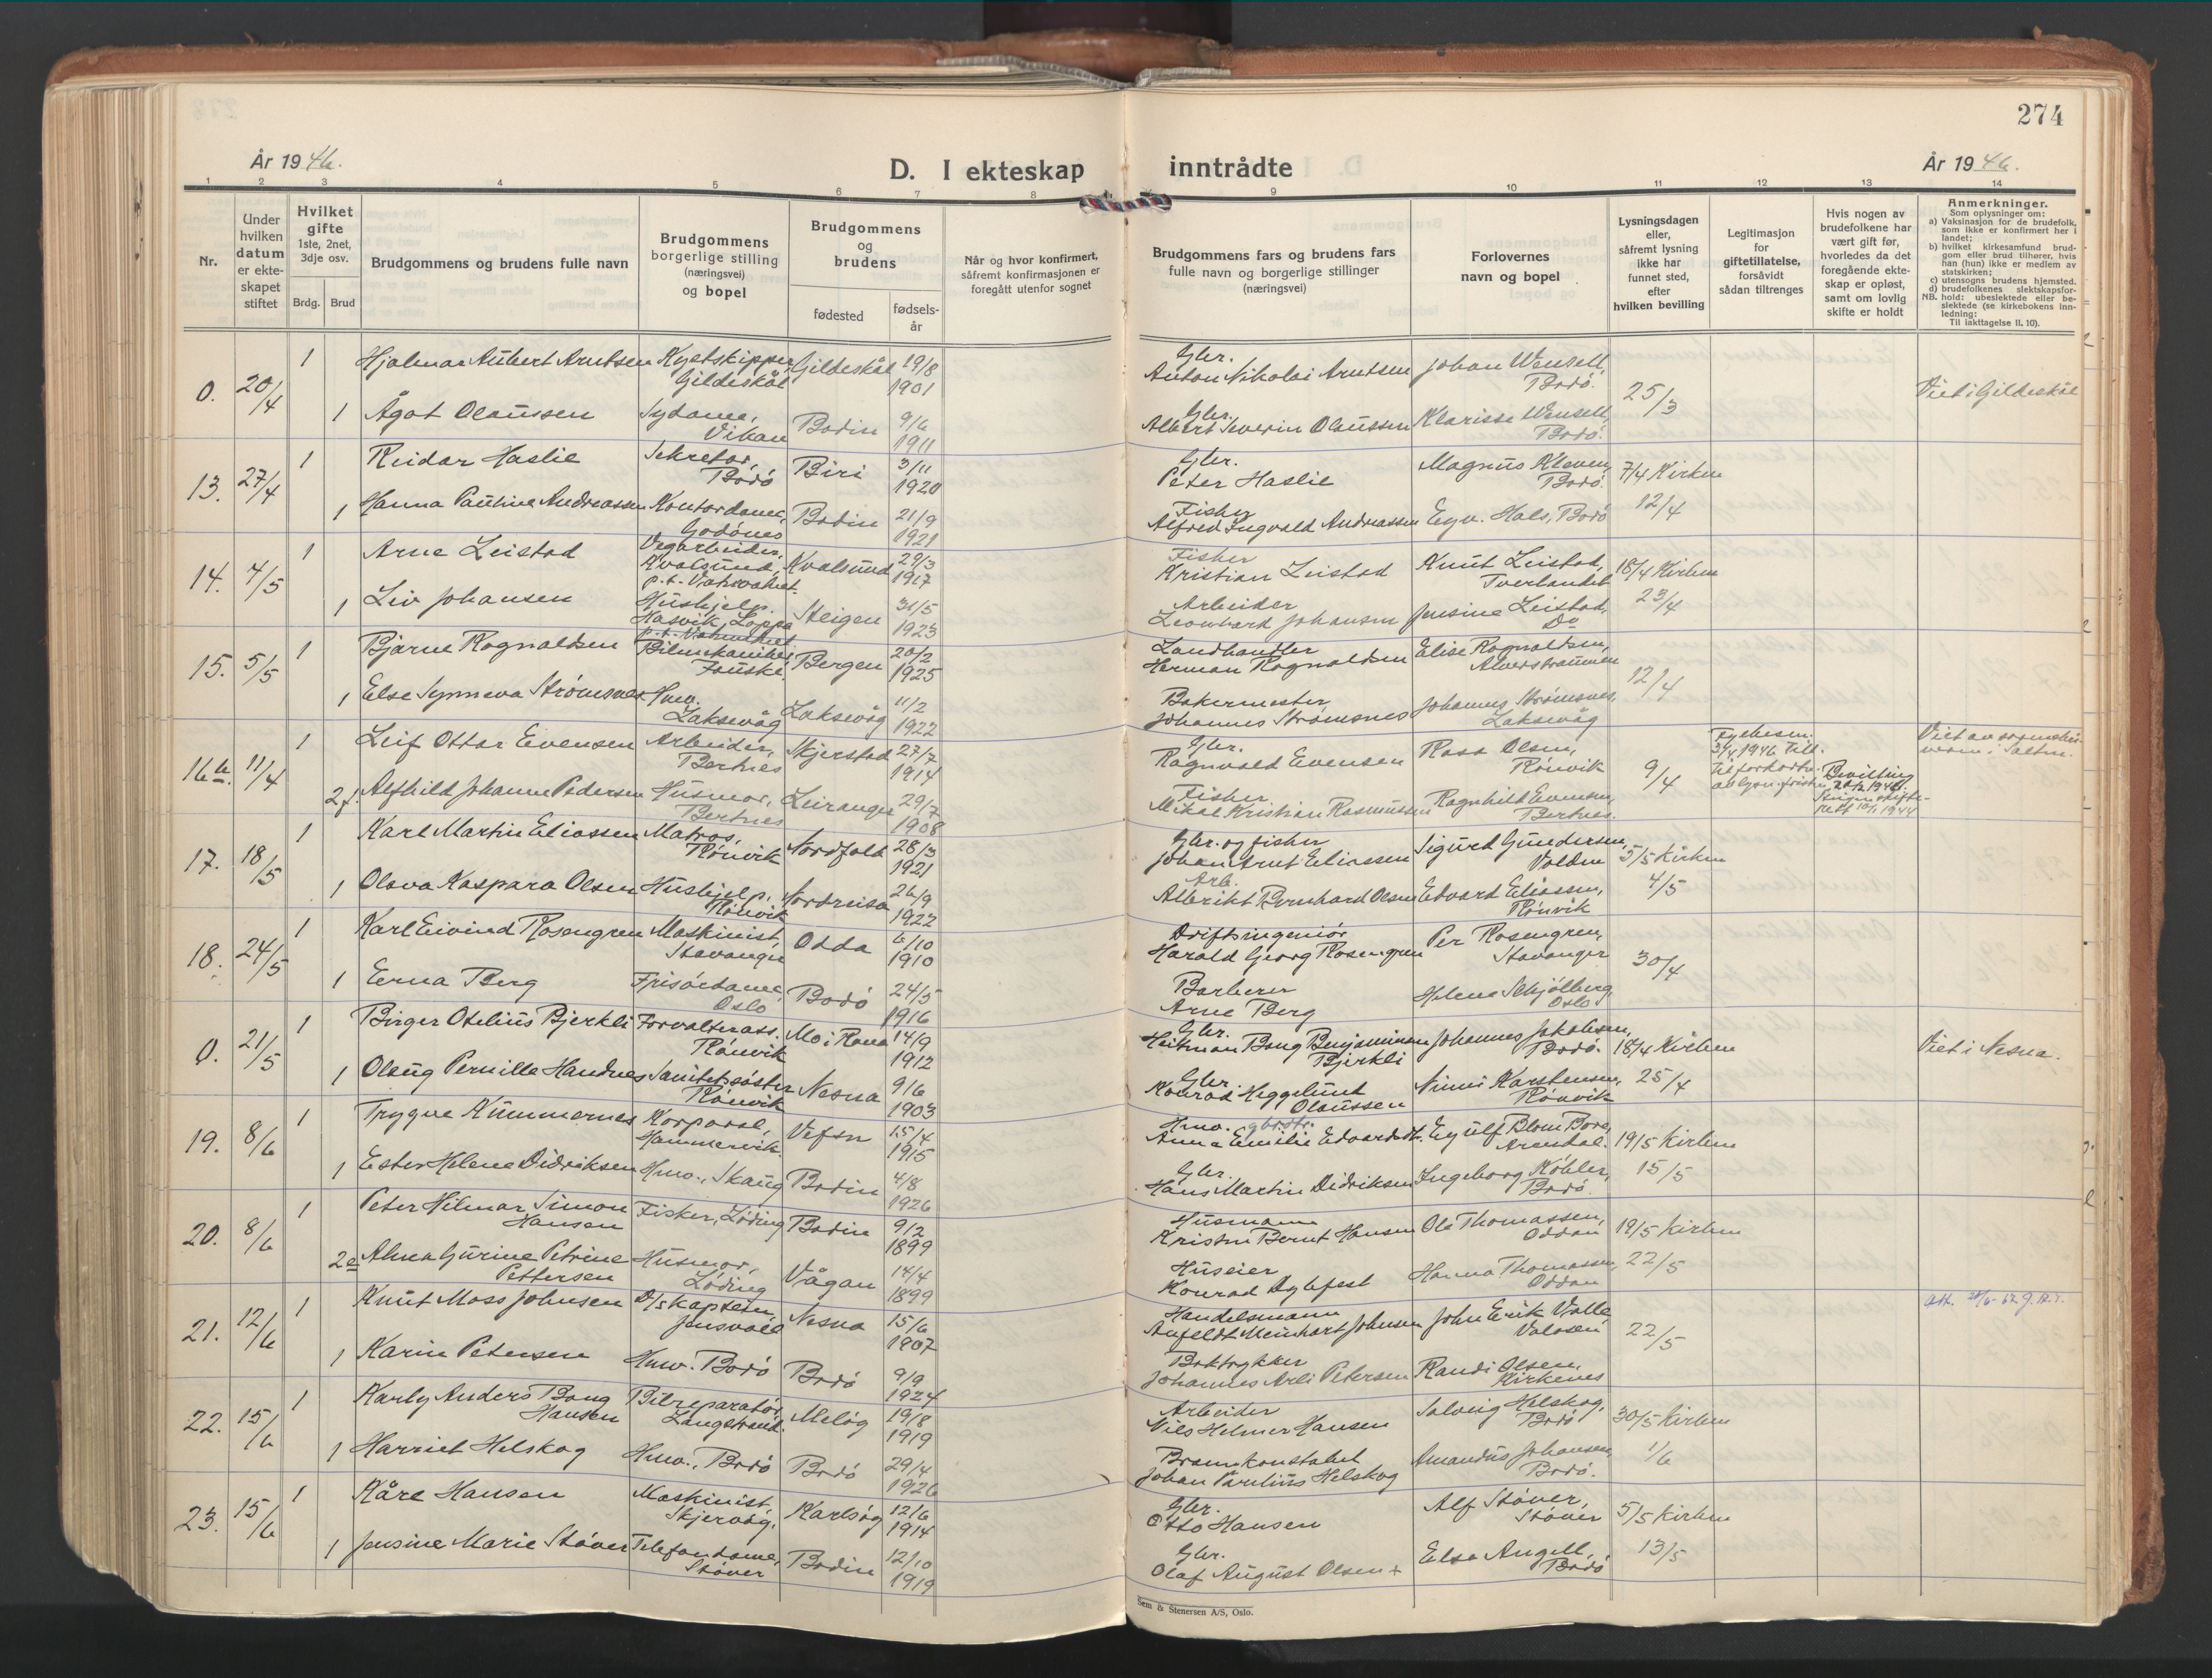 274
År 1946.
D. I ekteskap inntrådte
År 1946.
1 2 3 4 5 6 7 8 9 10 11 12 13 14
Nr.
Under hvilken datum er ekteskapet stiftet
Hvilket gifte
1ste, 2net, 3dje osv.
Brdg. Brud
Brudgommens og brudens fulle navn
Brudgommens borgerlige stilling (næringsvei) og bopel
Brudgommens og brudens
fødested
fødselsår
Når og hvor konfirmert, såfremt konfirmasjonen er foregått utenfor sognet
Brudgommens fars og brudens fars fulle navn og borgerlige stillinger (næringsvei)
Forlovernes navn og bopel
Lysningsdagen eller, såfremt lysning ikke har funnet sted, efter hvilken bevilling
Legitimasjon for giftetillatelse, forsåvidt sådan tiltrenges
Hvis nogen av brudefolkene har vært gift før, hvorledes da det foregående ekteskap er opløst, samt om lovlig skifte er holdt
Anmerkninger.
Som oplysninger om:
a) Vaksinasjon for de brudefolk, som ikke er konfirmert her i landet;
b) hvilket kirkesamfund brudgom eller brud tilhører, hvis han (hun) ikke er medlem av statskirken;
c) utensogns brudens hjemsted.
d) brudefolkenes slektskapsforhold: ubeslektede eller beslektede (se kirkebokens innledning:
NB.
Til iakttagelse II. 10).
0. 20/4 1 Hjalmar Aubert Arntsen Kystskipper, Gildeskål Gildeskål 19/8 1901 Gbr. Anton Nikolai Arntsen Johan Wensell, Bodö. 25/3 Viet i Gildeskål
1 Ågot Olaussen Sydame, Vikan Bodin 9/6 1911 Gbr. Albert Severin Olaussen Klarisse Wensell, Bodö.
13. 27/4 1 Reidar Haslie Sekretær, Bodö Biri 3/11 1920 Gbr. Peter Haslie Magnus Kleven, Bodö. 7/4 Kirken
1 Hanna Pauline Andreassen Kontordame, Godönes Bodin 21/9 1921 Fisker Alfred Ingvald Andreassen Eyv. Hals, Bodö 12/4
14. 4/5 1 Arne Leistad Vegarbeider, Kvalsund, p.t. Vatnvatnet Kvalsund 29/3 1917 Fisker Kristian Leistad Knut Leistad, Tverlandet 18/4 Kirken
1 Liv Johansen Hushjelp. Hasvik, Loppa p.t. Vatnvatnet Steigen 31/5 1923 Arbeider Leonhard Johansen Jensine Leistad, Do 23/4
15. 5/5 1 Bjarne Rognaldsen Bilmekaniker Fauske Bergen 20/2 1925 Landhandler Herman Rognaldsen Elise Rognaldsen, Alverstraumen 12/4
1 Else Synneva Strømsnes Hmv. Laksevåg Laksevåg 11/2 1922 Bakermester, Johannes Strømsnes Johannes Strømsnes, Laksevåg
16b. 11/4 1 Leif Ottar Evensen Arbeider, Bertnes Skjerstad 27/7 1914 Gbr. Ragnvald Evensen Rasa Olsen, Rönvik 9/4 Fylkesm. 3/4 1946 Till. til forkortn. av lysn.fristen Viet av sorenskriveren i Salten.
2 f. Alfhild Johanne Pedersen Husmor, Bertnes Leiranger 29/7 1908 Fisker Mikal Kristian Rasmussen Ragnhild Evensen, Bertnes. Bevilling
17. 18/5 1 Karl Martin Eliassen Matros, Rönvik Nordfold 28/3 1921 Gbr. og fisker Johan Arnt Eliassen Sigurd Gundersen, Valdm 5/5 Kirken
1 Olava Kaspara Olsen Hushjelp, Rönvik Nordreisa 26/9 1922 Arb. Albrikt Bernhard Olsen Edvard Eliassen, Rönvik 4/5
18. 24/5 1 Karl Eivind Rosengren Maskinist, Stavanger Odda 6/10 1910 Driftsingeniör Harald Georg Rosengren Per Rosengren, Stavanger 30/4
1 Erna Berg Frisördame, Oslo Bodö 24/5 1916 Barberer Arne Berg Helene Schjölberg, Oslo
0. 21/5 1 Birger Otelius Bjerkli Forvalterass. Rönvik Mo i Rana 14/9 1912 Gbr. Heitman Bang Benjaminsen Bjerkli Johannes Jakobsen, Bodö. 18/4 Kirken Viet i Nesna.
1 Olaug Pernille Handnes Sanitetssöster Rönvik Nesna 9/6 1903 Gbr. Konrad Heggelund Olaussen Ninni Karstensen, Rönvik 25/4
19. 8/6 1 Trygve Kummernes Korporal, Hammervik. Vefsn 15/4 1915 Hmv. gbrstr. Anna Emilie Edvardsdtr. Eyulf Blom Bore, Arendal. 19/5 Kirken
1 Ester Helene Didriksen Hmv., Skaug Bodin 4/8 1926 Gbr. Hans Martin Didriksen Ingeborg Köhler, Bodö 15/5
20. 8/6 1 Peter Hilmar Simon Hansen Fisker, Löding Bodin 9/2 1899 Husmann Kristen Bernt Hansen Ole Thomassen, Oddan 19/5 Kirken
2 e Alma Gurine Petrine Pettersen Husmor, Löding Vågan 14/4 1899 Huseier Konrad Dybfest Hanna Thomassen, Oddan 22/5
21. 12/6 1 Knut Moss Johnsen D/s kaptein, Jensvoll Nesna 15/6 1907 Handelsmann Anfeldt Meinhart Johnsen John Erik Valla, Valosen 22/5
1 Karin Petersen Hmv. Bodö Bodö 9/9 1924 Boktrykker Johannes Arli Petersen Randi Olsen, Kirkenes
22. 15/6 1 Karly Anders Bang Hansen Bilreparatör, Langstrand. Melöy 19/8 1919 Arbeider Nils Helmer Hansen Solveig Helskog, Bodö 30/5 Kirken
1 Harriet Helskog Hmv., Bodö Bodö 29/4 1926 Brannkonstabel Johan Paulius Helskog Amandus Johansen, Bodö. 1/6
23. 15/6 1 Kåre Hansen Maskinist, Skjervöy, Karlsöy 12/6 1914 Gbr. Otto Hansen Alf Stöver, Stöver 5/5 Kirken
1 Jensine Marie Stöver Telefondame, Stöver Bodin 12/10 1919 Gbr. Olaf August Olsen + Else Angell, Bodö 13/5
Sem & Stenersen A/S, Oslo.